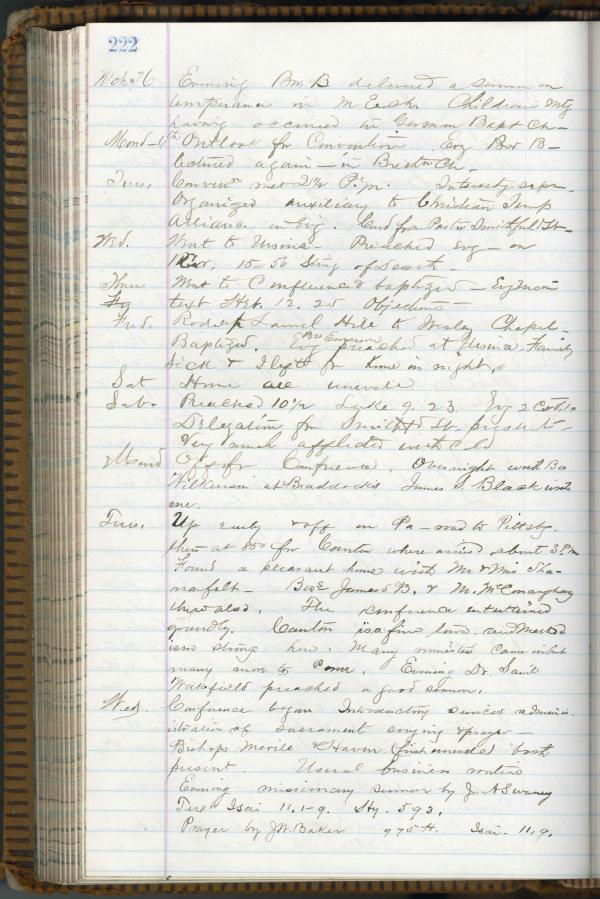 222
Mch 76 Evening Bro. B delivered a sermon on
temperance in M.E. Ch. Childrens Mtg
having occurred in German Bapt Ch—
Mond—6th Outlook for Convention Evg Bro B—
lectured again—in Brethn Ch.
Tues. Conven met 2 1/2 P.m.
Organized auxiliary to Christian Temp
Alliance in Evg. Card from Pastor Smithfield St—
Wed. Went to Ursina— Preached Evg—on
1 Cor. 15-56 Sting of death—
Thur Went to Confluence baptized—Evg
Fry text Heb. 12.25
Frid. Rode Laurel Hill to Wesley Chapel—
Baptized. Evg preached at Ursina. Family
sick & I left for home in night.
Sat Home all
Sab. Preached 10 1/2 Luke 9.23. Evg 2 Cor
Delegation fm Smithfd St. present—
Very much afflicted with cold
Mond Off for Conference. Over night with Bo
Wilkinson at Braddocks James S. Black with
me.
Tues. Up early & off on Pa—road to Pittsbg.
then at for Canton where arrived about 3 P.m
Found a pleasant home with Mr & Mrs
Bro James B. & M. McConaghay
there also. The conference entertained
grandly. Canton is a fine town and Method
ism strong here. Many ministers came in but
many more to come. Evening Dr. Saml
Wakefield preached a good sermon.
Wed. Conference began Introductory services admin
istration of Sacrament singing & prayer—
Bishops & Haven both
present. Usual business routine
Evening missionary sermon by J. A Swaney
Text Isai 11.1-9. Hy. 593.
Prayer by J W. Baker 975 H. Isai. 11.9.